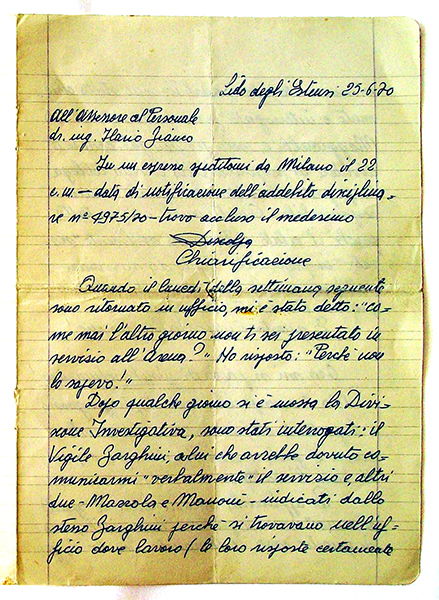 Lido degli Estensi 25-6-70
All'Assessore al Personale
dr. ing. Ilario Bianco
In un espresso speditomi da Milano il 22
c.m. – data di notificazione dell'addebito disciplina=
re n° 4975/70 – trovo accluso il medesimo
Discolpa
Chiarificazione
Quando il lunedì della settimana seguente
sono ritornato in ufficio, mi è stato detto: "co=
me mai l'altro giorno non ti sei presentato in
servizio all'Arena?" Ho risposto: "Perché non
lo sapevo!"
Dopo qualche giorno si è mossa la Divi=
sione Investigativa, sono stati interrogati: il
Vigile Zarghini, colui che avrebbe dovuto co=
municarmi "verbalmente" il servizio e altri
due – Mazzola e – indicati dallo
stesso Zarghini perché si trovavano nell'uf=
ficio dove lavoro (le loro risposte certamente